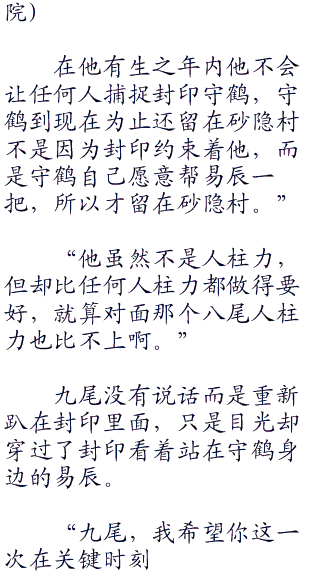 院）
在他有生之年内他不会
让任何人捕捉封印守鹤，守
鹤到现在为止还留在砂隐村
不是因为封印约束着他，而
是守鹤自己愿意帮易辰一
把，所以才留在砂隐村。”
“他虽然不是人柱力，
但却比任何人柱力都做得要
好，就算对面那个八尾人柱
力也比不上啊。”
九尾没有说话而是重新
趴在封印里面，只是目光却
穿过了封印看着站在守鹤身
边的易辰。
“九尾，我希望你这一
次在关键时刻